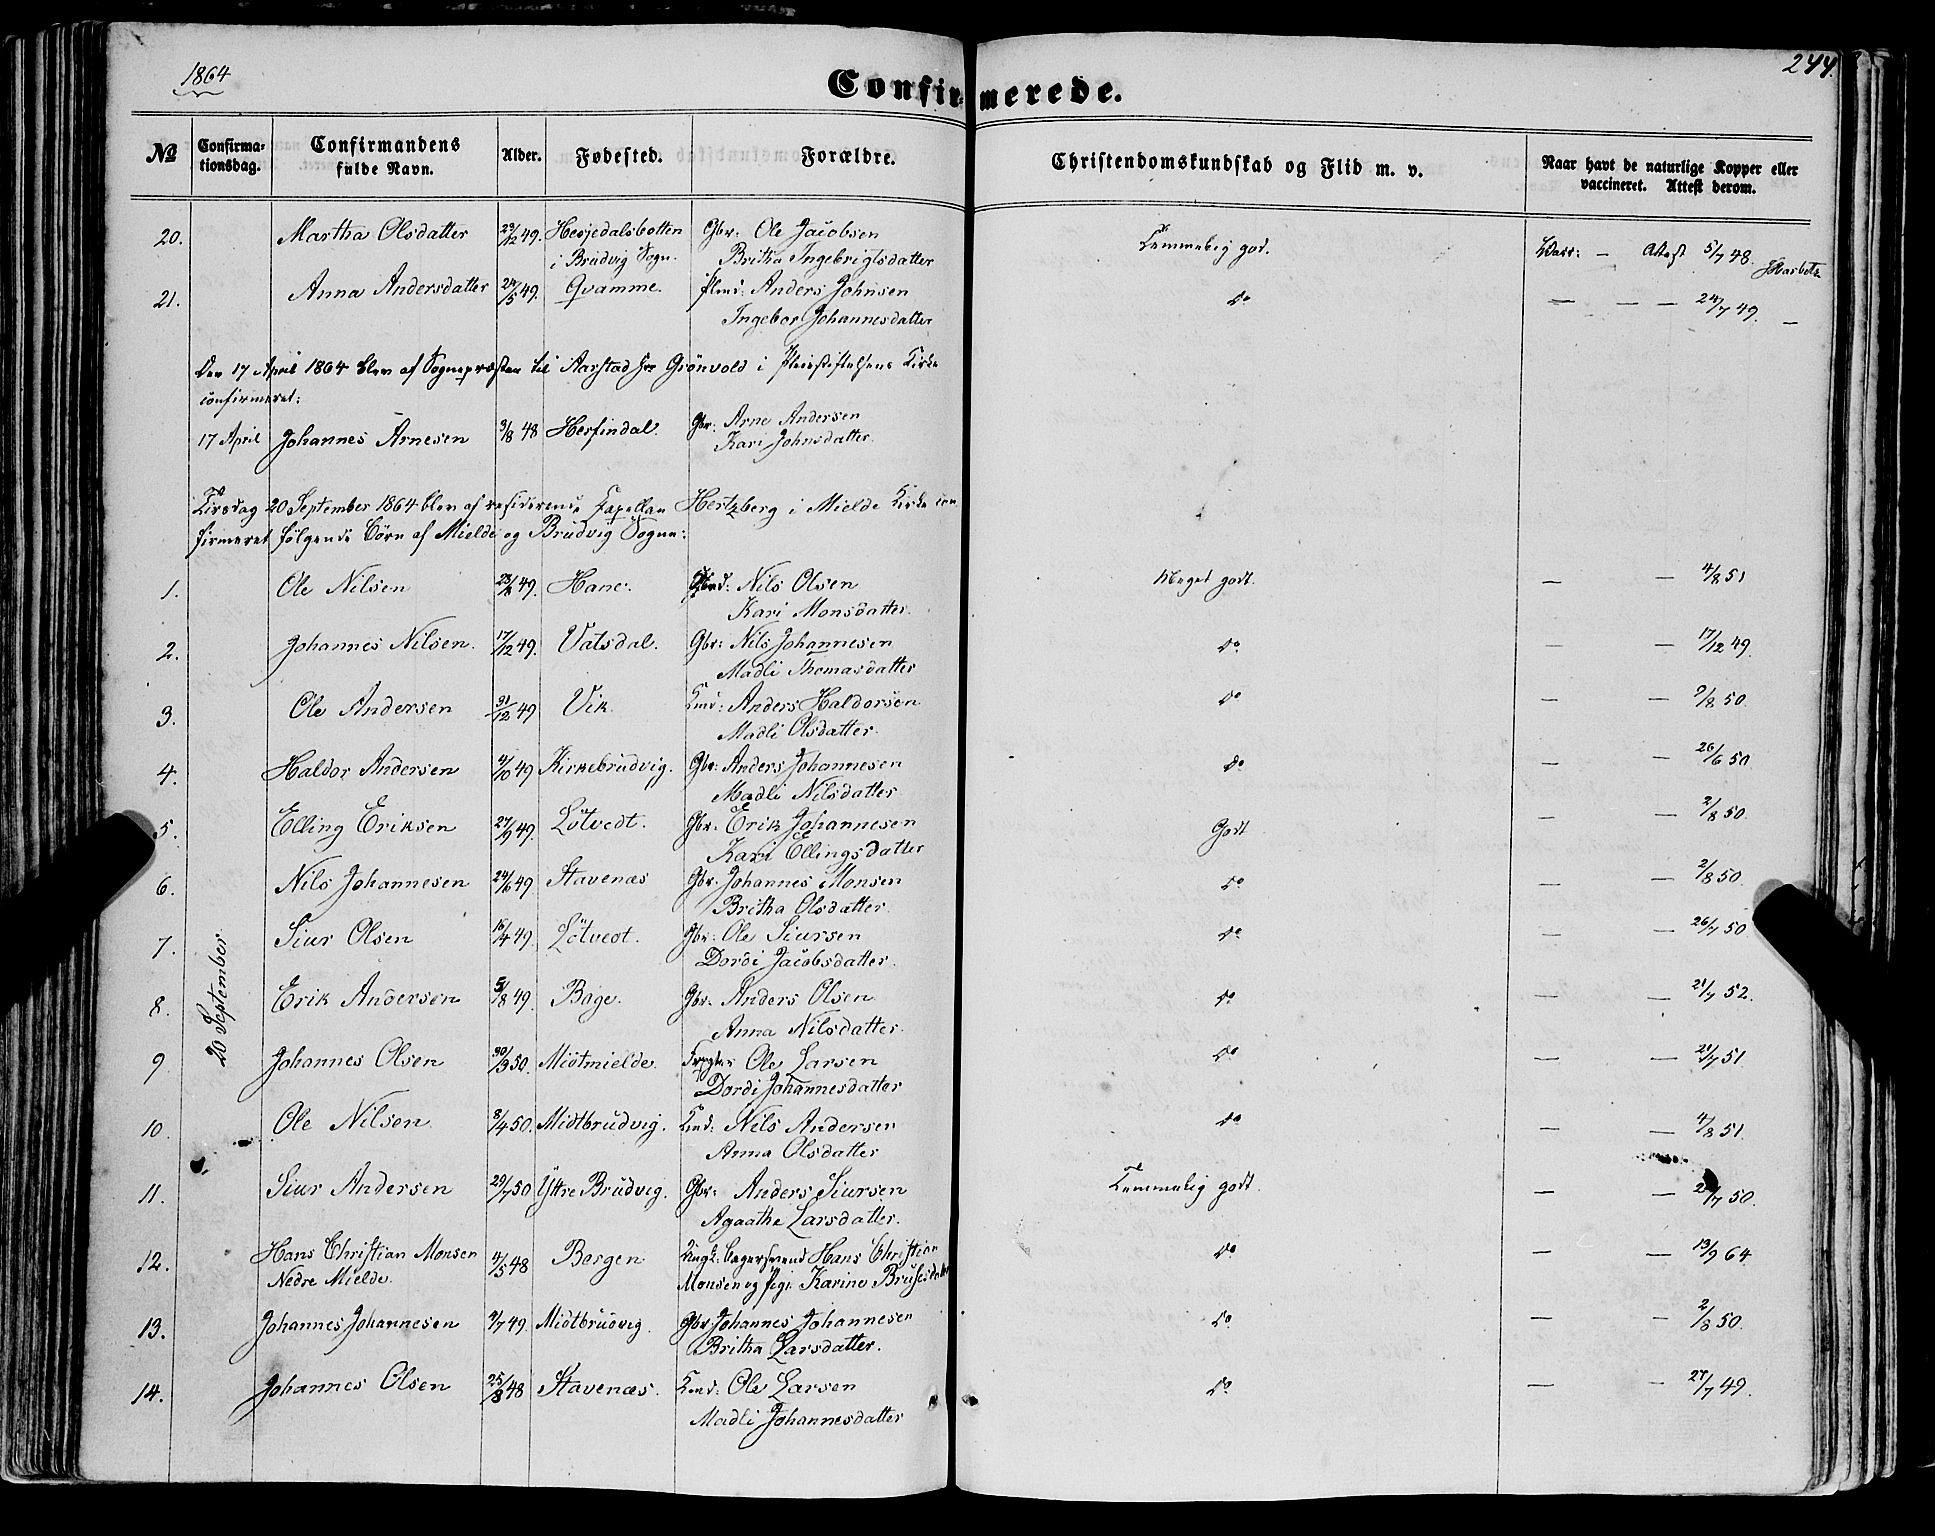 1864
244.
Confirmerede.
№ Confirmationsdag. Confirmandens fulde Navn. Alder. Fødested. Forældre. Christendomskundskab og Flid m. v. Naar havt de naturlige Kopper eller vaccineret. Attest derom.
20. Martha Olsdatter 23/12 49. Hesjedalsbotten Gbr: Ole Jacobsen Temmelig god. Vacc: — Attest 5/7 48.
i Brudvig Sogn. Britha Ingebrigtsdatter
21. Anna Andersdatter 24/5 49. Qvamme. Anders Johnsen do — — — 24/7 49. —
Ingebor Johannesdatter
Den 17 April 1864 blev af Sognepræsten til Aarstad Hr Grönvold i Pleiestiftelsens Kirke
confirmeret:
17 April Johannes Arnesen 3/8 48 Herfindal. Gbr: Arne Andersen
Kari Johnsdatter.
Tirsdag 20 September 1864 blev af residerende Kapellan Hertzberg i Mielde Kirke con
firmeret følgende Börn af Mielde og Brudvig Sogne:
1. Ole Nilsen 49. Hane. Nils Olsen Meget godt. — — 4/8 51
Kari Monsdatter.
2. Johannes Nilsen. 17/12 49. Vatsdal. Gbr: Nils Johannesen do — — 17/12 49.
Madli Thomasdatter
3. Ole Andersen 31/12 49 Vik Anders Haldorsen do — — 9/8 50.
Madli Olsdatter.
4. Haldor Andersen 4/10 49 Kirkebrudvig. Gbr: Anders Johannesen do — — 26/6 50
Madli Nilsdatter
5. Elling Eriksen 27/9 49. Lötvedt. Gbr: Erik Johannesen Godt — — 2/8 50.
Kari Ellingsdatter
6. Nils Johannesen 24/6 49 Stavenæs Gbr: Johannes Monsen do — — 2/8 50.
Britha Olsdatter.
7. Siur Olsen 16/4 49. Lötvedt. Gbr: Ole Siursen do — — 26/7 50
Dordi Jacobsdatter.
20 September
8. Erik Andersen 5/8 49. Böge. Gbr. Anders Olsen do — — 21/7 52.
Anna Nilsdatter.
9. Johannes Olsen 30/3 50. Midtmielde. Ole Larsen do — — 21/7 51.
Dordi Johannesdatter
10. Ole Nilsen 8/4 50. Midtbrudvig. Nils Andersen do — — 4/8 51.
Anna Olsdatter
11. Siur Andersen 29/7 50 Yttre Brudvig. Gbr: Anders Siursen Temmelig godt. — — /7 50.
Agaathe Larsdatter.
12. Hans Christian Monsen 4/5 48 Bergen Ungk: Hans Christian do — — 13/9 64
Nedre Mielde. Monsen og Pige Karine
13. Johannes Johannesen 4/7 49. Midtbrudvig. Gbr Johannes Johannesen do — — 2/8 50.
Britha Larsdatter.
14. Johannes Olsen 25/8 48 Stavenæs. Ole Larsen do — — 27/7 49.
Madli Johannesdatter